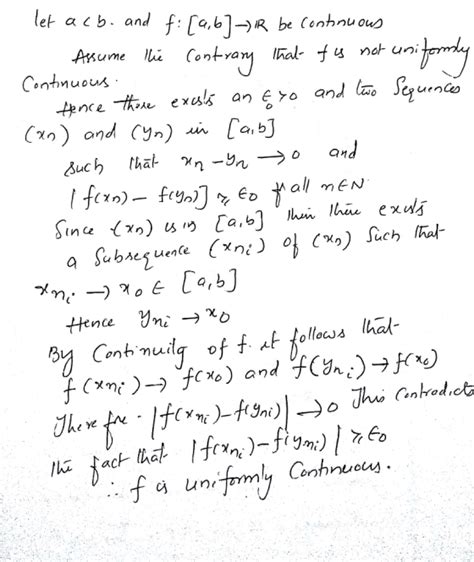 let a < b. and f: [a,b] → ℝ be continuous
Assume the contrary that f is not uniformly
Continuous.
Hence there exists an ε₀ > 0 and two Sequences
(xn) and (yn) in [a,b]
such that xn - yn → 0 and
|f(xn) - f(yn)| ≥ ε0 ∀ all n∈N
Since (xn) is in [a,b] then there exists
a Subsequence (xni) of (xn) such that
xni → x0 ∈ [a,b]
Hence yni → x0
By Continuity of f. it follows that
f(xni) → f(x0) and f(yni) → f(x0)
Therefore |f(xni) - f(yni)| → 0 This contradicts
the fact that |f(xni) - f(yni)| ≥ ε0
∴ f is uniformly Continuous.